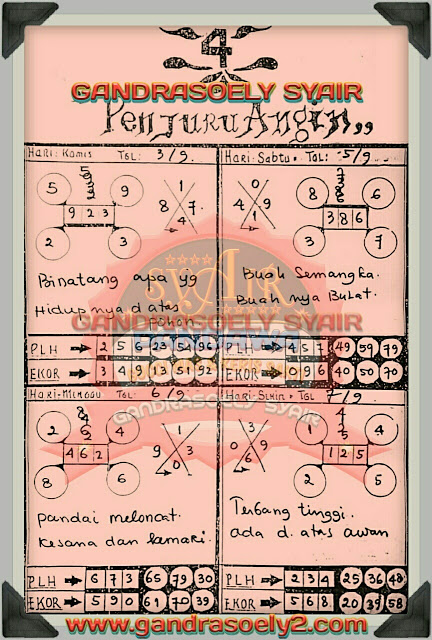 4
GANDRASOELY SYAIR
Penjuru Angin,,
Hari: Kamis TGL: 3/9.
5 9
9 2 3
2 3
1
8 7
4
Binatang apa yg
Hidupnya diatas
pohon
PLH 2 5 6 23 54 96
EKOR 3 4 9 13 51 92
Hari: Sabtu. TGL: 5/9.
8 6
3 8 6
3 7
0
4 9
1
Buah Semangka.
Buah nya Bulat.
PLH 4 5 7 49 59 79
EKOR 0 9 6 40 50 70
SYAIR
GANDRASOELY SYAIR
GANDRASOELY SYAIR
Hari: Minggu TGL: 6/9
2 4
4 6 2
8 6
1
9 3
0
pandai meloncat.
kesana dan kemari.
PLH 6 7 3 65 79 30
EKOR 5 9 0 61 70 39
Hari: Senin. TGL 7/9
1 4
1 2 5
2 5
0
3 9
6
Terbang tinggi.
ada di atas awan
PLH 2 3 4 25 36 48
EKOR 5 6 8 20 39 58
www.gandrasoely2.com